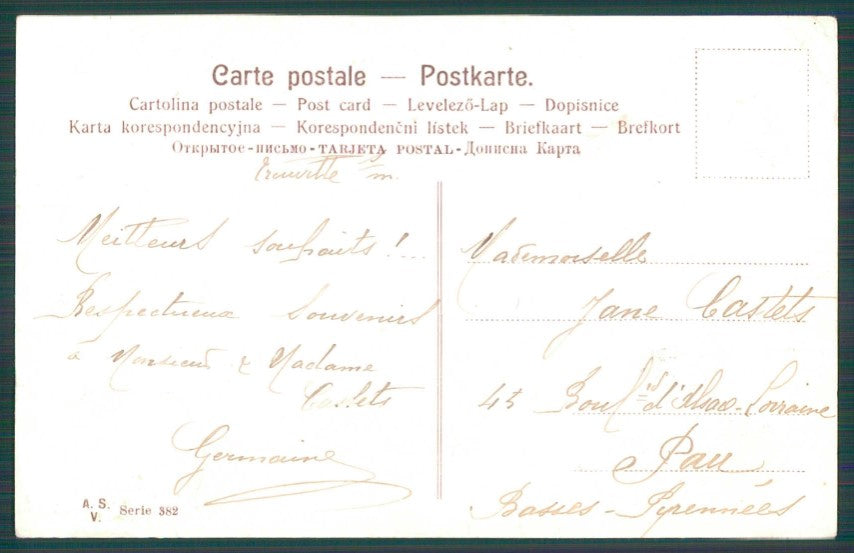 Carte postale — Postkarte.
Cartolina postale — Post card — Levelező-Lap — Dopisnice
Karta korespondencyjna — Korespondenční lístek — Briefkaart — Brefkort
Открытое-письмо-TARJETA POSTAL-Дописна Карта
Meilleurs souhaits!...
Respectueux Souvenirs
à Monsieur & Madame
Castets
Germaine
A. S.
V. Serie 382
Mademoiselle
Jane Castets
Boulᵈ d'Alsace-Lorraine
Pau
Basses-Pyrennées